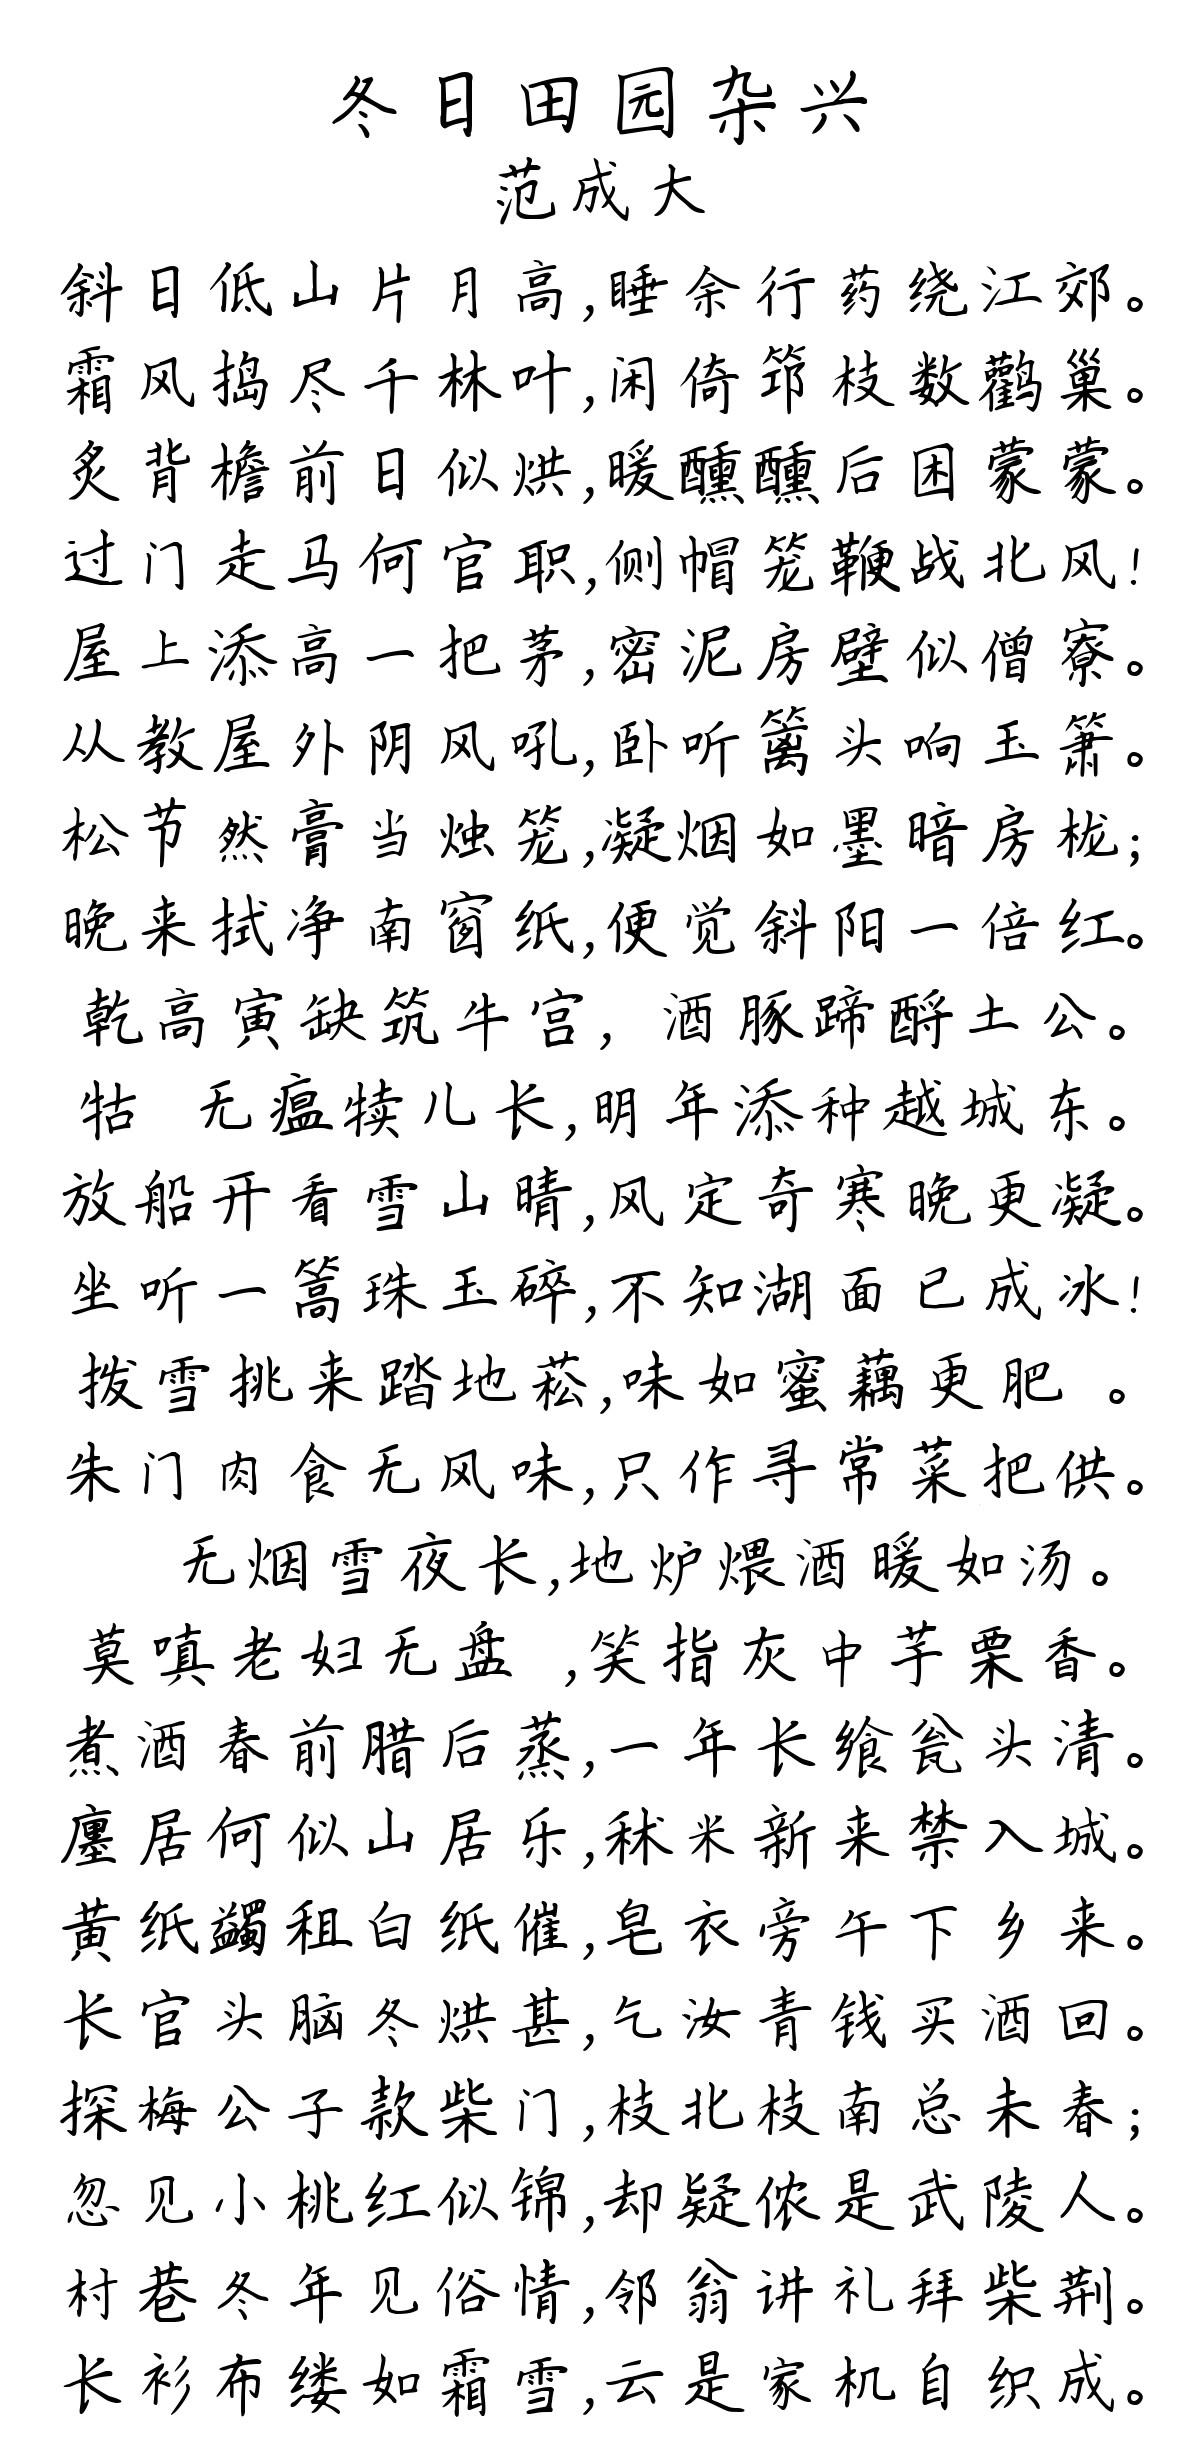 冬日田园杂兴
范成大
斜日低山片月高,睡余行药绕江郊。
霜风捣尽千林叶,闲倚筇枝数鹳巢。
炙背檐前日似烘,暖醺醺后困蒙蒙。
过门走马何官职,侧帽笼鞭战北风!
屋上添高一把茅,密泥房壁似僧寮。
从教屋外阴风吼,卧听篱头响玉箫。
松节然膏当烛笼,凝烟如墨暗房栊;
晚来拭净南窗纸,便觉斜阳一倍红。
乾高寅缺筑牛宫,酒豚蹄酹土公。
牯 无瘟犊儿长,明年添种越城东。
放船开看雪山晴,风定奇寒晚更凝。
坐听一篙珠玉碎,不知湖面已成冰!
拨雪挑来踏地菘,味如蜜藕更肥 。
朱门肉食无风味,只作寻常菜把供。
无烟雪夜长,地炉煨酒暖如汤。
莫嗔老妇无盘 ,笑指灰中芋栗香。
煮酒春前腊后蒸,一年长飨瓮头清。
廛居何似山居乐,秫米新来禁入城。
黄纸蠲租白纸催,皂衣旁午下乡来。
长官头脑冬烘甚,乞汝青钱买酒回。
探梅公子款柴门,枝北枝南总未春;
忽见小桃红似锦,却疑侬是武陵人。
村巷冬年见俗情,邻翁讲礼拜柴荆。
长衫布缕如霜雪,云是家机自织成。